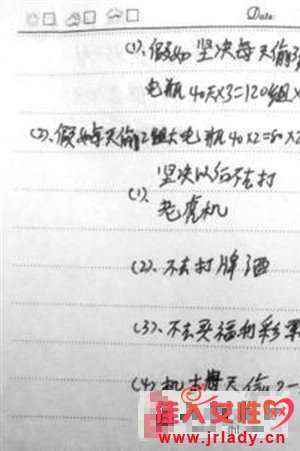 Date:
(1)、假如坚决每天偷3
电瓶40天×3=120组×
(2)、假如每天偷2组大电瓶40×2=80×2
坚决以后不去打
(1)、老虎机
(2)、不去打牌酒
(3)、不去买福利彩票
(4) 每天偷2
佳人女性网
www.jrlady.cn